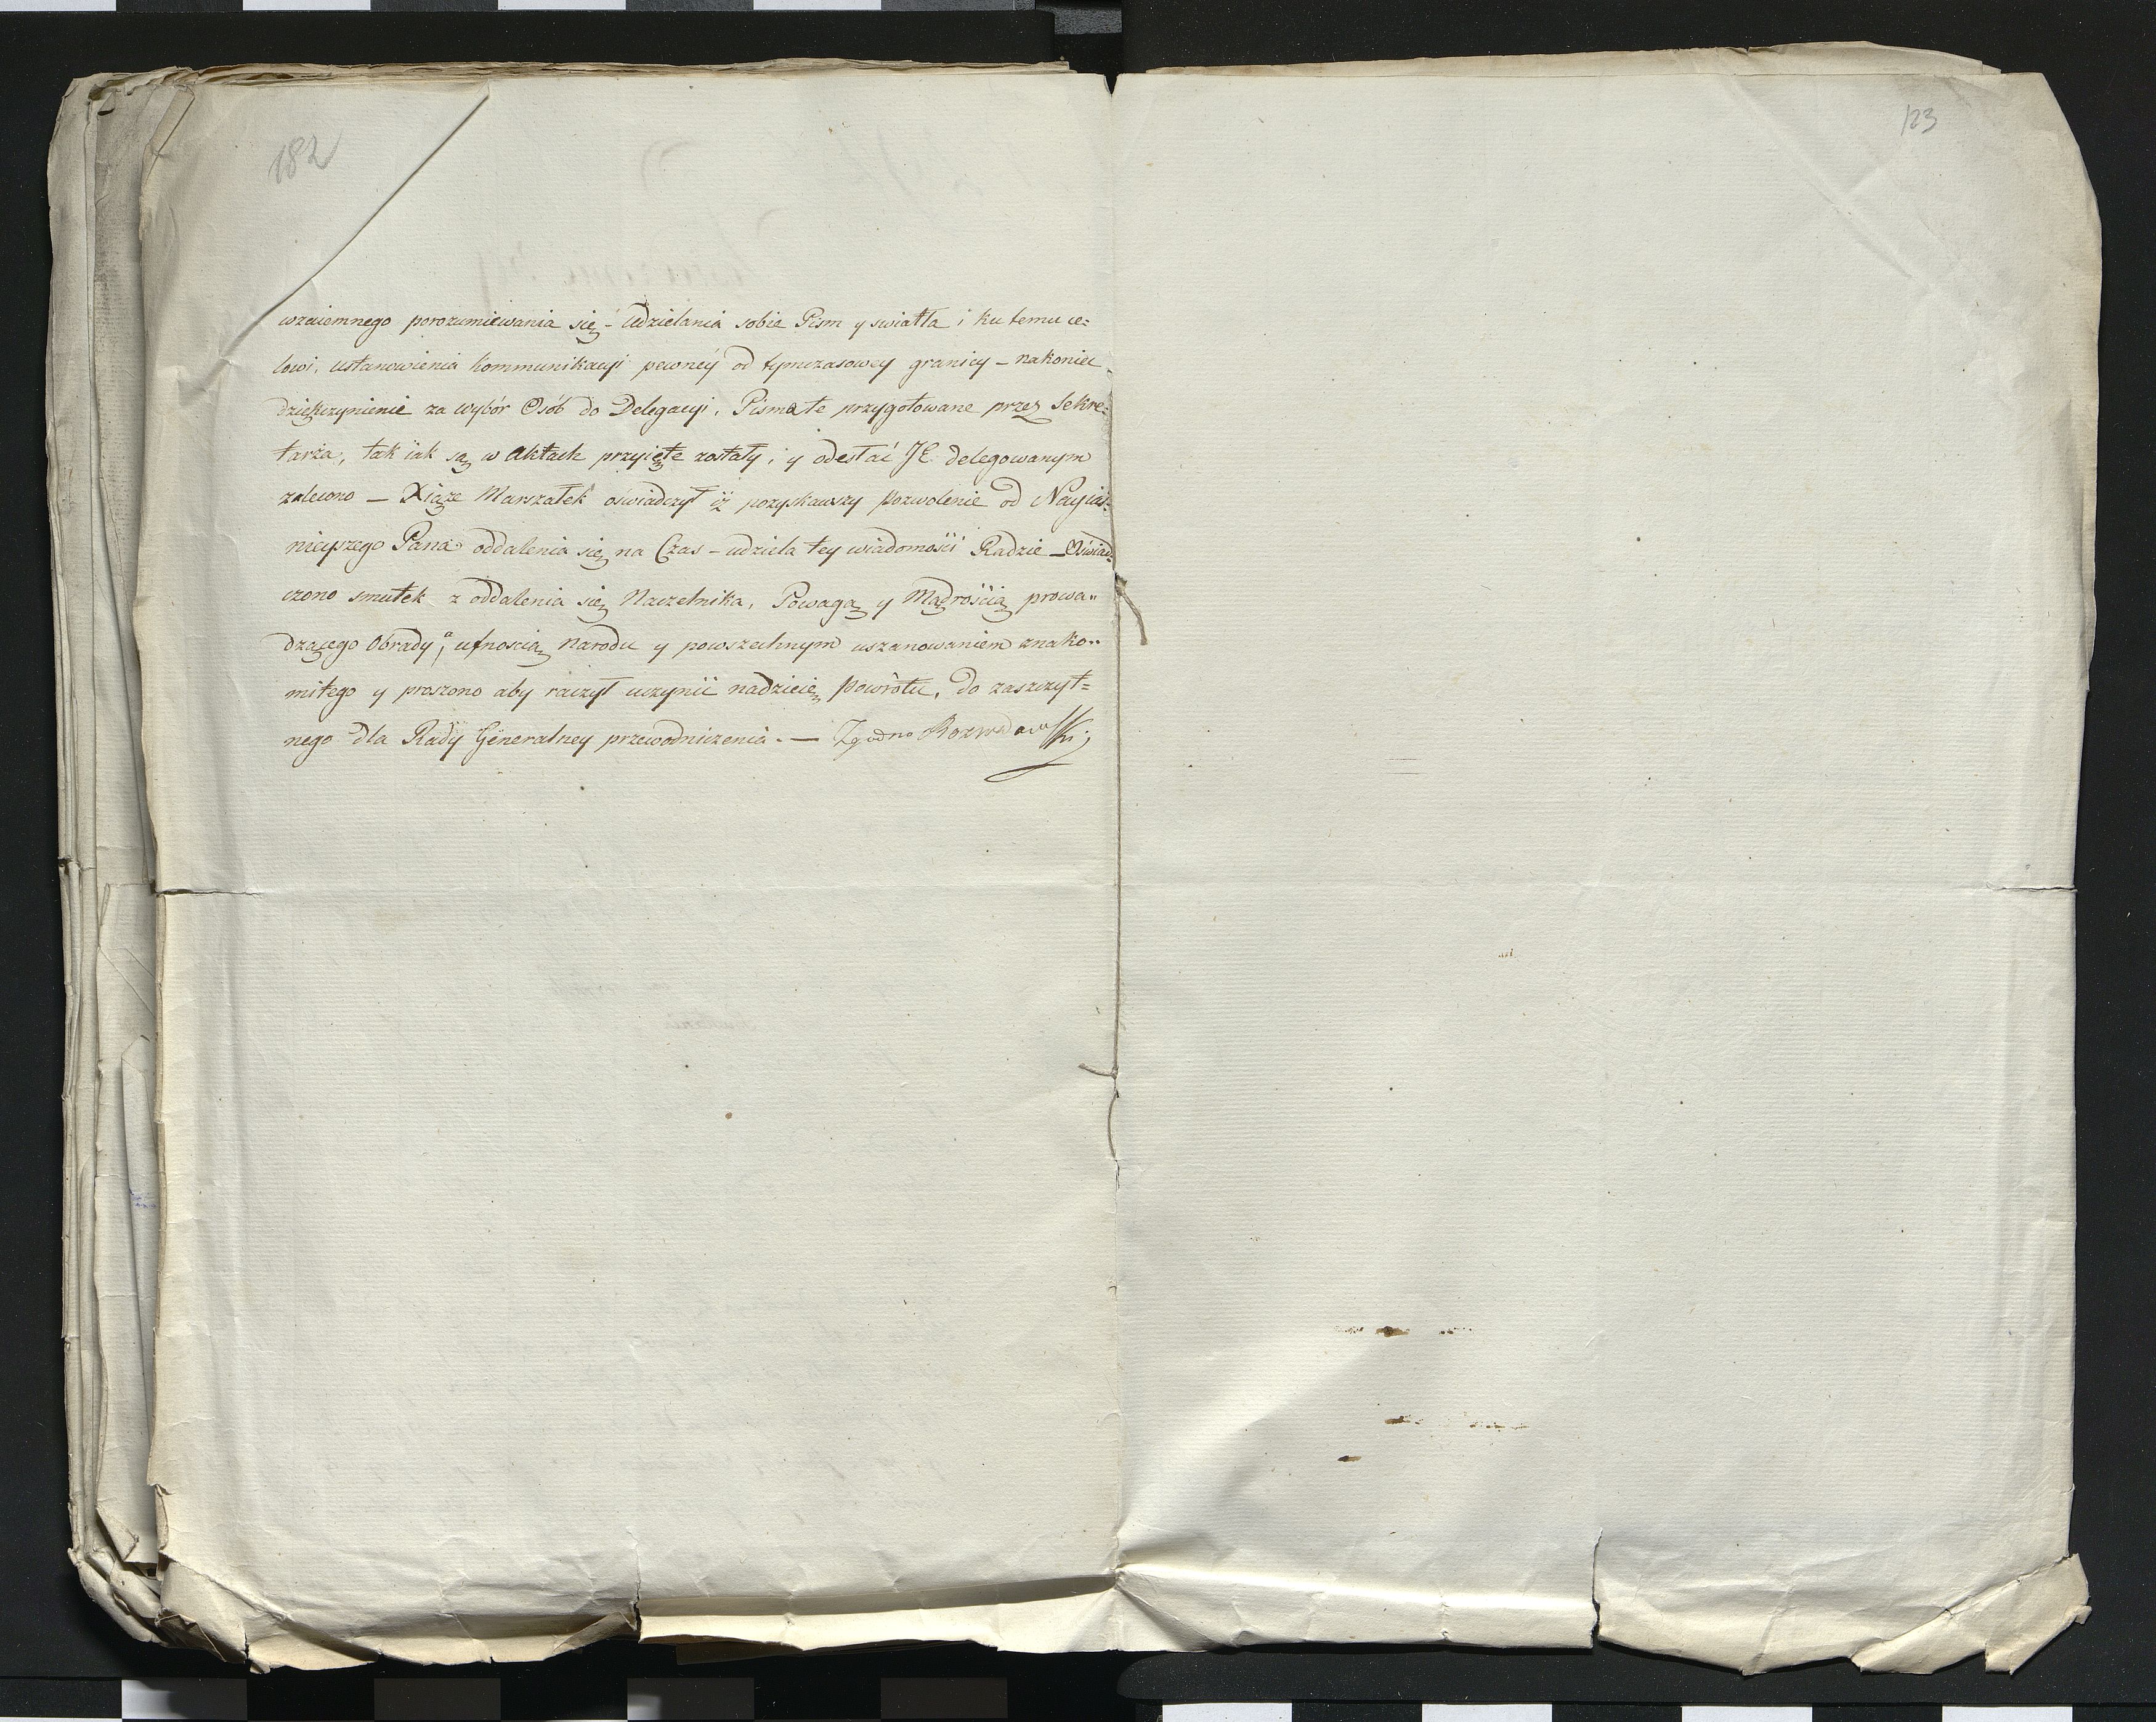 182
123
wzaiemnego porozumiewania się - Udzielania sobie Pism y swiatła i ku temu ce=
lowi, ustanowienia kommunikacyi pewnéy od tymczasowey granicy - nakoniec
dziękczynienie za wybór Osób do Delegacyi. Pisma te przygotowane przez Sekre=
tarza, tak iak są w Aktach przyięte zostały, y odesłać JE delegowanym
zalecono - Xiąże Marszałek oświadczył iż pozyskawszy pozwolenie od Nayiaś=
nieyszego Pana oddalenia się na Czas - udziela tey wiadomości Radzie - Oświad=
czono smutek z oddalenia się Naczelnika, Powagą y Mądrością prowa"
dzącego Obrady, a ufnoscią Narodu y powszechnym uszanowaniem znako"
mitego y proszono aby raczył uczynić nadzieię powrótu, do zaszczyt=
nego dla Rady Generalney przewodniczenia. - Zgodno Rozwadowski